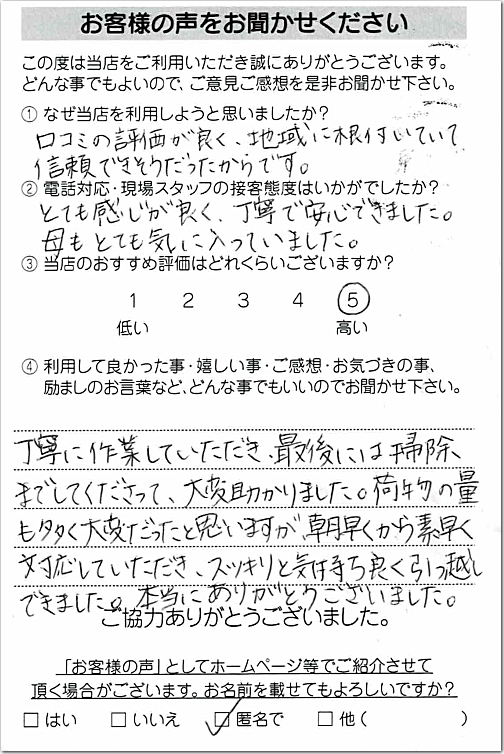 お客様の声をお聞かせください
この度は当店をご利用いただき誠にありがとうございます。
どんな事でもよいので、ご意見ご感想を是非お聞かせ下さい。
① なぜ当店を利用しようと思いましたか？
口コミの評価が良く、地域に根付いていて
信頼できそうだったからです。
② 電話対応・現場スタッフの接客態度はいかがでしたか？
とても感じが良く、丁寧で安心できました。
母もとても気に入っていました。
③ 当店のおすすめ評価はどれくらいございますか？
1 2 3 4 5
低い 高い
④ 利用して良かった事・嬉しい事・ご感想・お気づきの事、
励ましのお言葉など、どんな事でもいいのでお聞かせ下さい。
丁寧に作業していただき、最後には掃除
までしてくださって、大変助かりました。荷物の量
も多く大変だったと思いますが、朝早くから素早く
対応していただき、スッキリと気持ち良く引っ越し
できました。本当にありがとうございました。
ご協力ありがとうございました。
「お客様の声」としてホームページ等でご紹介させて
頂く場合がございます。お名前を載せてもよろしいですか？
□ はい □ いいえ □ 匿名で □ 他（ ）